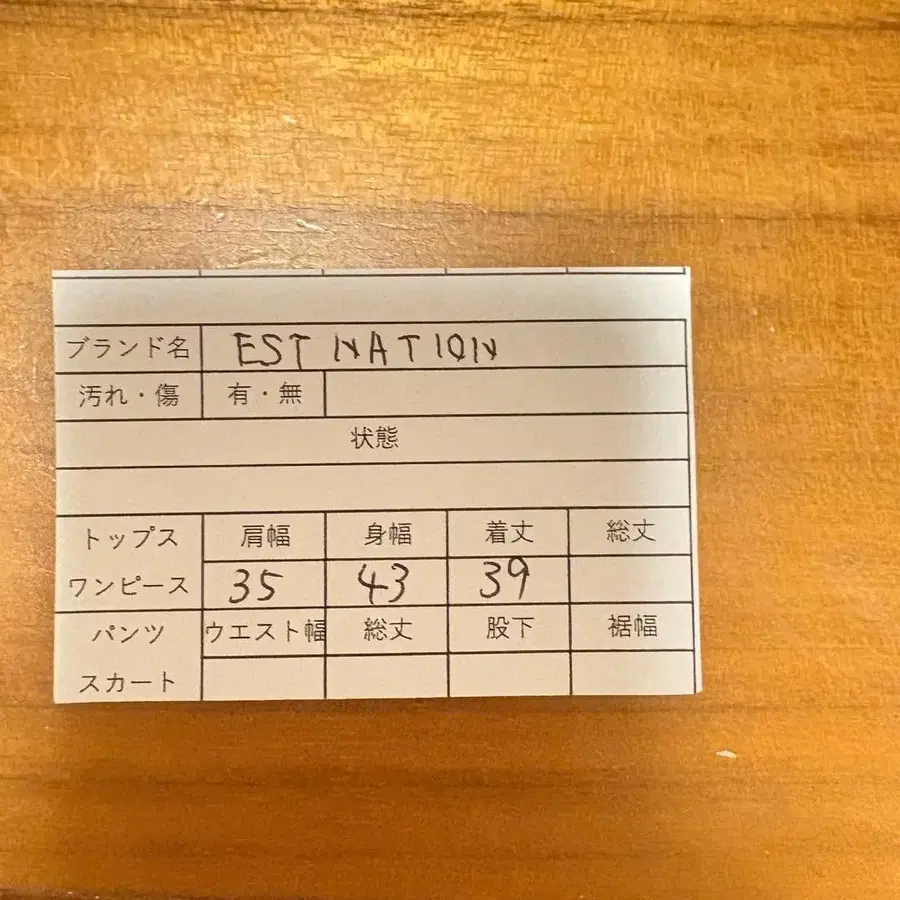 ブランド名 EST NATION
汚れ・傷 有・無
状態
トップス 肩幅 身幅 着丈 総丈
ワンピース 35 43 39
パンツ ウエスト幅 総丈 股下 裾幅
スカート